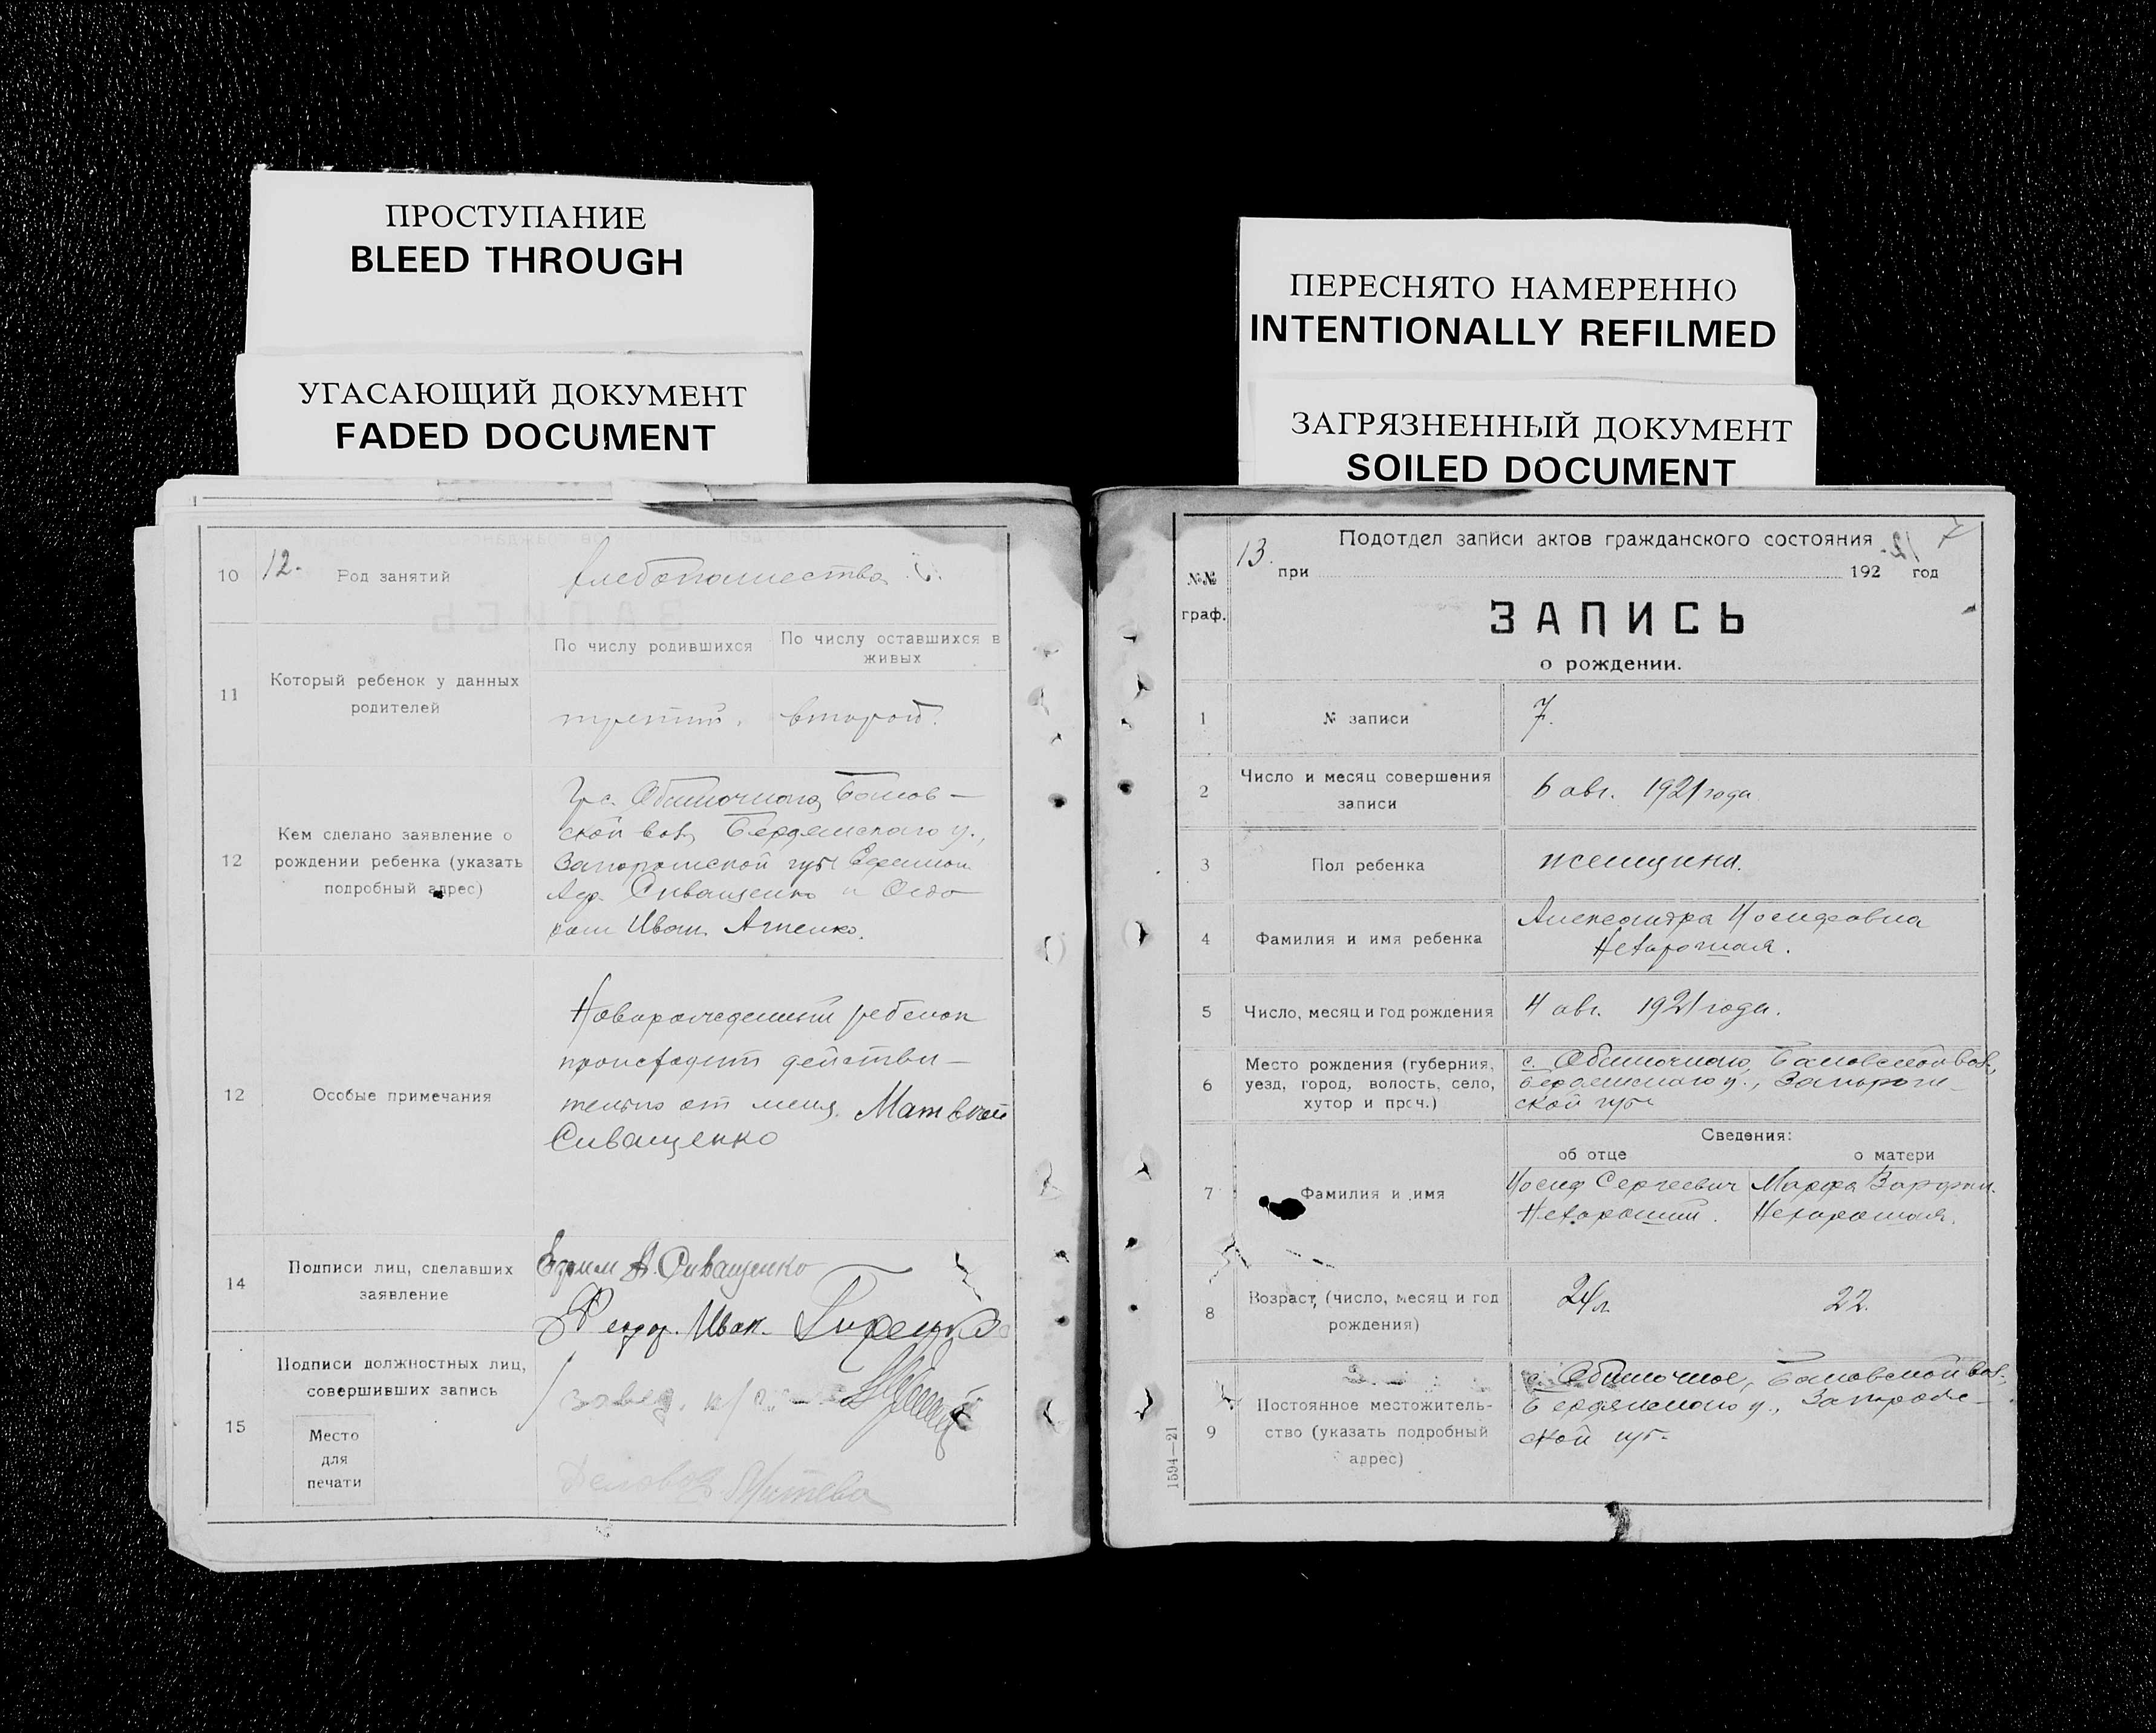 ПРОСТУПАНИЕ
BLEED THROUGH
УГАСАЮЩИЙ ДОКУМЕНТ
FADED DOCUMENT
ПЕРЕСНЯТО НАМЕРЕННО
INTENTIONALLY REFILMED
ЗАГРЯЗНЕННЫЙ ДОКУМЕНТ
SOILED DOCUMENT
12.
10 Род занятий
11 Который ребенок у данных
родителей
По числу родившихся
По числу оставшихся в
живых
третий. второй.
12 Кем сделано заявление о
рождении ребенка (указать
подробный адрес)
Гр. с. Обиточного,
ской вол, Бердянского у.,
Запорожской губ. Ефимом
Сиващенко и Федо
ром Иван.
12 Особые примечания
Новорожденный ребенок
происходит действи-
тельно от меня. Матвей
Сиващенко
14 Подписи лиц, сделавших
заявление
Ефим А. Сиващенко
Федор. Иван.
15 Подписи должностных лиц,
совершивших запись
Место
для
печати
завед.
7
13.
Подотдел записи актов гражданского состояния
№№
граф.
при 192 год
ЗАПИСЬ
о рождении.
1 № записи 7.
2 Число и месяц совершения
записи
6 авг. 1921 года
3 Пол ребенка женщина.
4 Фамилия и имя ребенка
Александра Иосифовна
Нехорошая.
5 Число, месяц и год рождения 4 авг. 1921 года.
6 Место рождения (губерния,
уезд, город, волость, село,
хутор и проч.)
с. Обиточного, вол,
Бердянского у., Запорож-
ской губ.
Сведения:
об отце о матери
7 Фамилия и имя
Иосиф Сергеевич
Нехороший.
Марфа
Нехорошая.
8 Возраст, (число, месяц и год
рождения)
24 л. 22.
9 Постоянное местожитель-
ство (указать подробный
адрес)
с. Обиточное, вол,
Бердянского у., Запорож-
ской губ.
1594—21